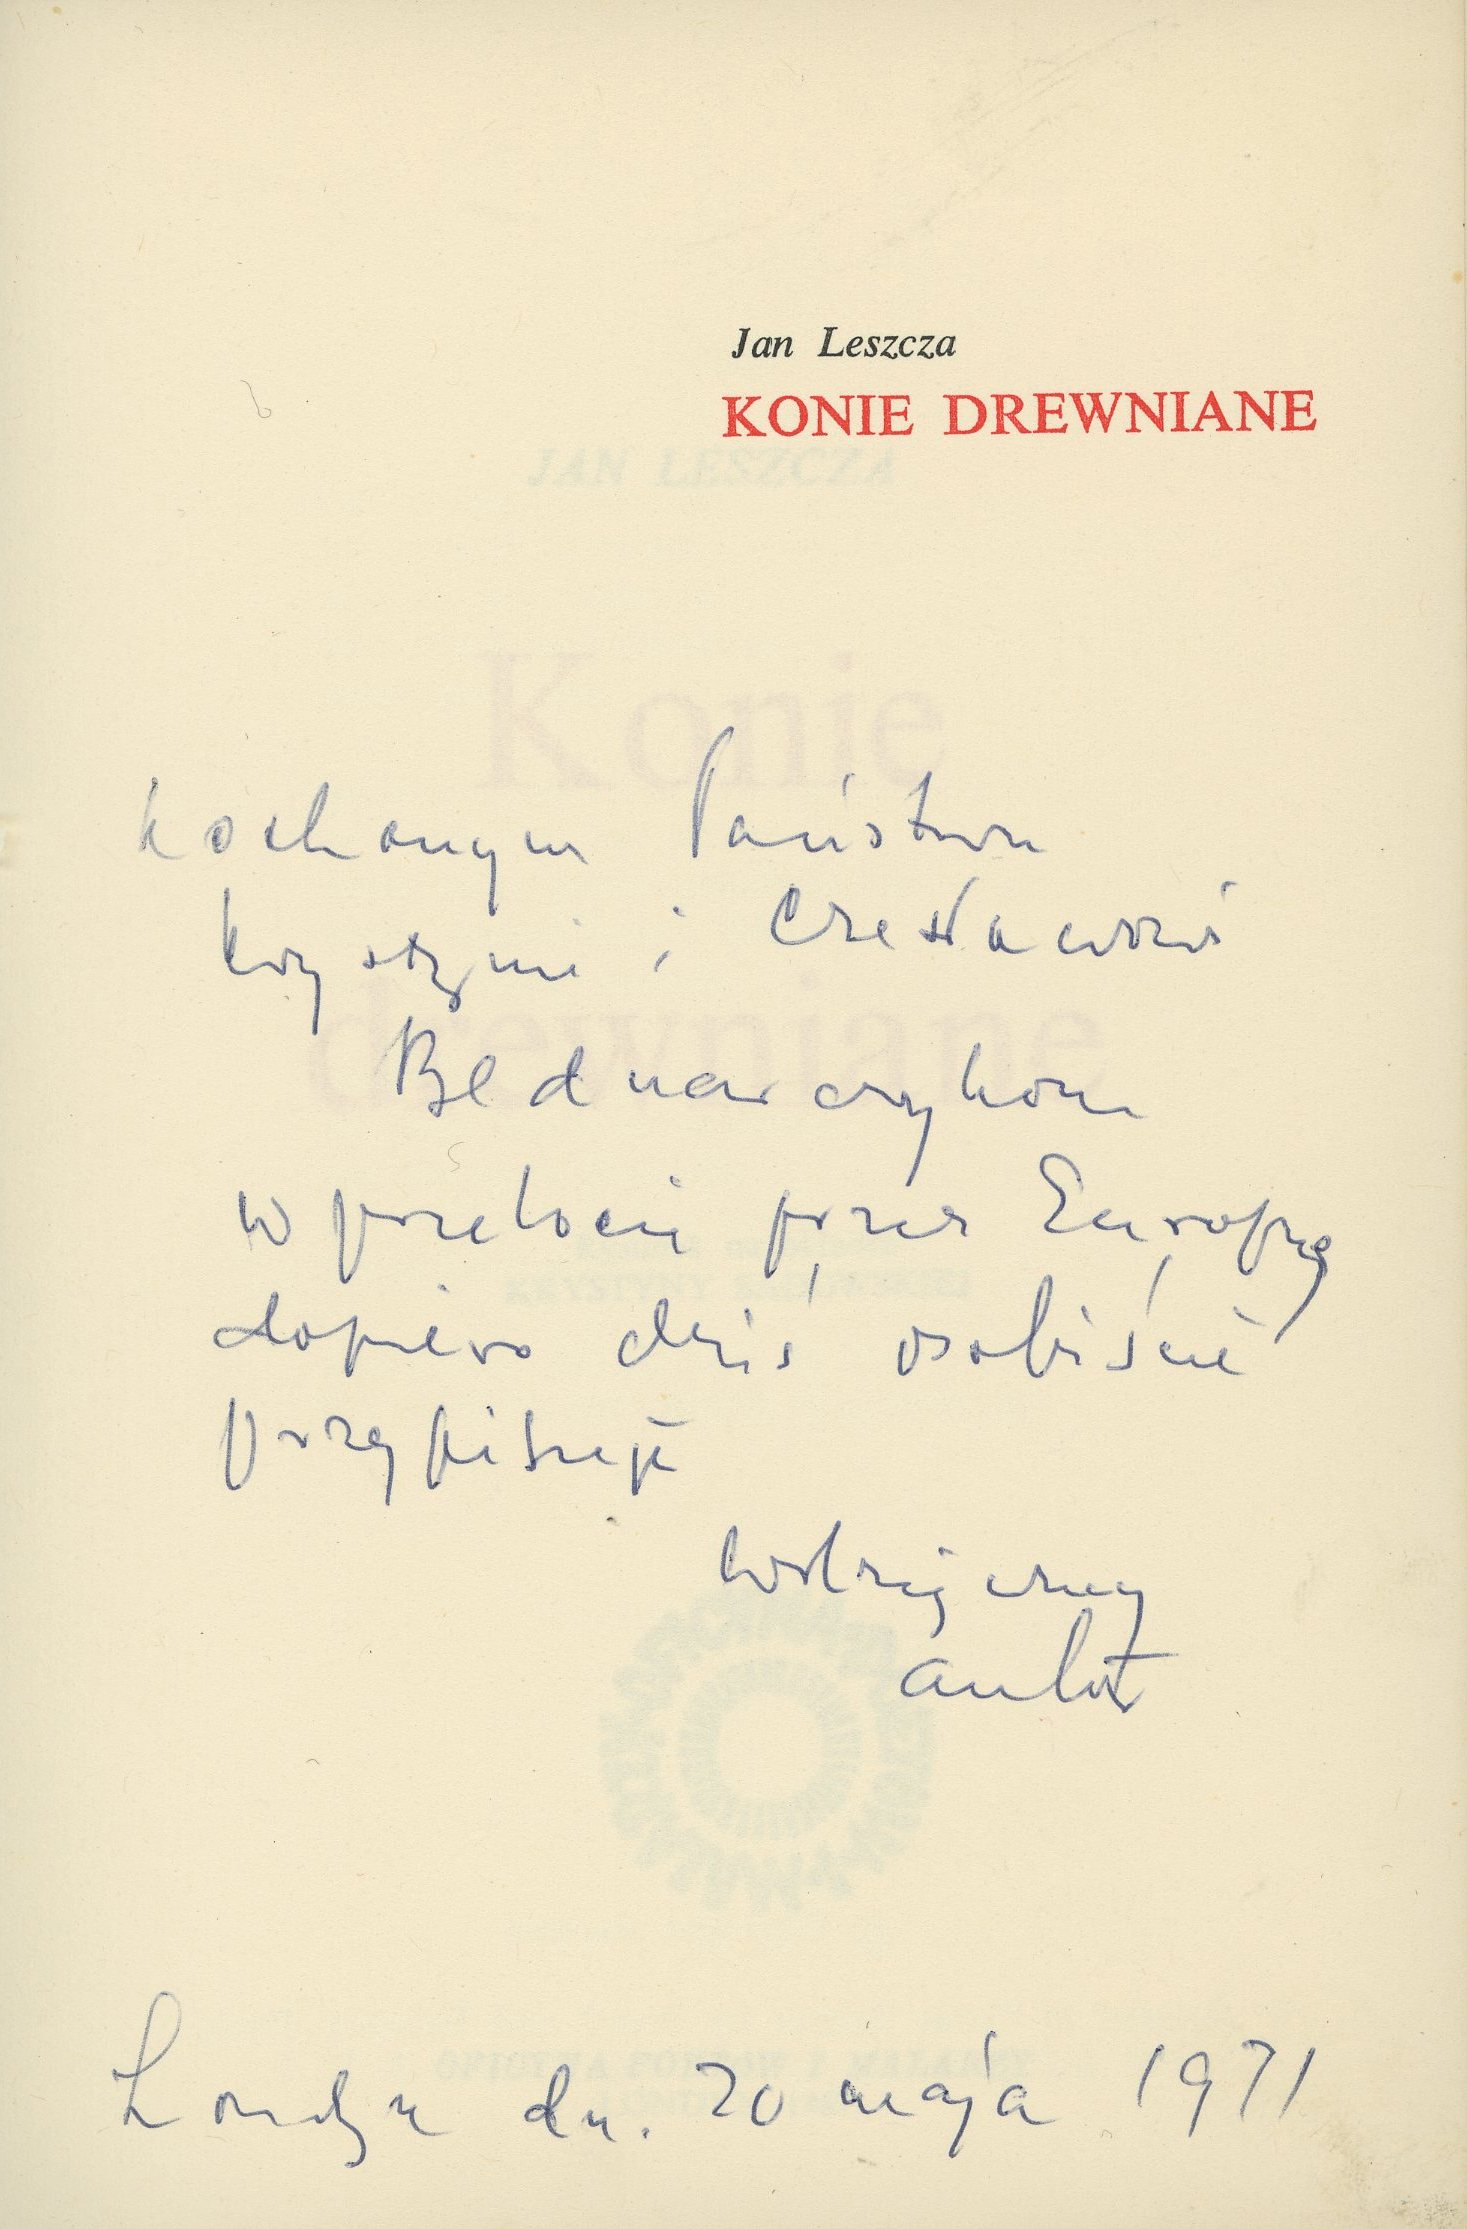 Jan Leszcza
KONIE DREWNIANE
Kochanym Państwu
Krystynie i Czesławowi
Bednarczykom
w przelocie przez Europę
dopiero dziś osobiście
przypisuję
wdzięczny
autor
Londyn dn. 20 maja 1971